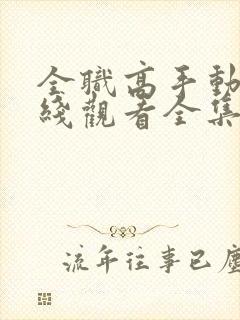 全職高手動
綫觀看全集
流年往事已塵